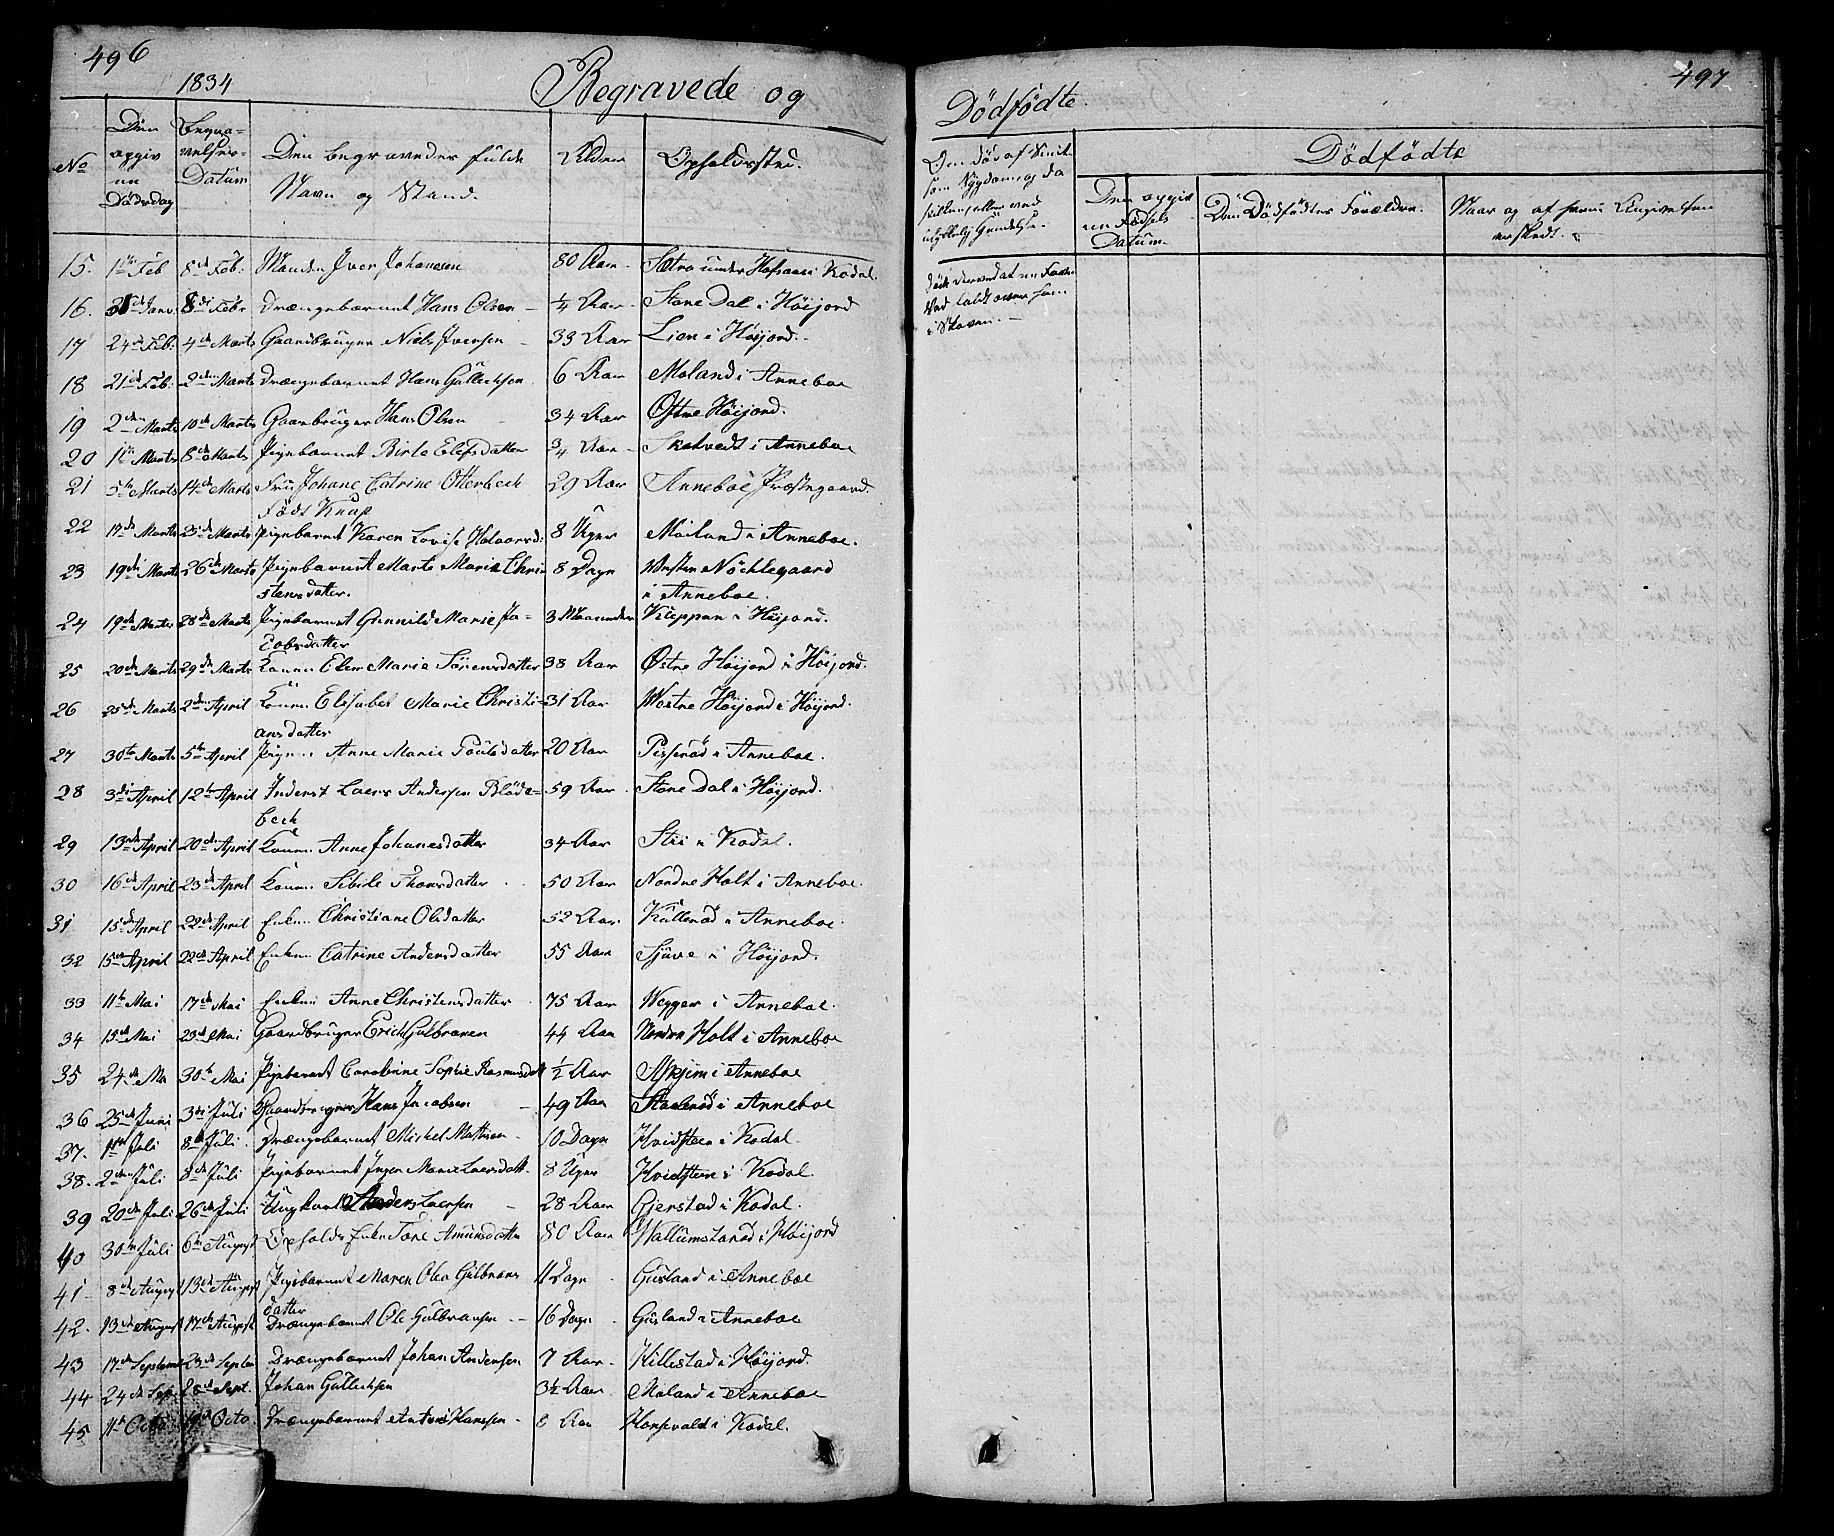 496
1834
Begravede og
No
Den opgivne Dødsdag
Begravelses-Datum
Den begravedes fulde Navn og Stand.
Alder
Opholdssted.
15. 1ste Feb 8de Feb: Manden Iver Johansen 80 Aar. Sætre under Hasaas i Kodal.
16. 31te Janr 8de Febr Drængebarnet Hans Olsen — 1/4 Aar. Store Dal i Höijord
17 24de Feb. 4de Marts Gaardbruger Niels Iversen 33 Aar Lien i Höijord.
18 21de Feb. 2den Marts Drængebarnet Hans Gullichsen 6 Aar Moland i Anneboe
19 2den Marts 10de Marts Gaarbruger Hans Olsen 34 Aar Østre Höijord.
20 1ste Marts 8de Marts Pigebarnet Birte Elefsdatter 3/4 Aar Skatvedt i Anneboe
21 5te Marts 14de Marts Fru Johane Catrine Otterbech 29 Aar Anneboe Præstegaard.
Födt Knap
22 19de Marts 25de Marts Pigebarnet Karen Lovise Halvorsd: 8 Uger Moland i Anneboe.
23 19de Marts 26de Marts Pigebarnet Marte Marie Chri- 8 Dage Vestre Nöchlegaard
stensdatter. i Anneboe.
24 19de Marts 28de Marts Pigebarnet Gunnild Marie Ja- 3 Maaneder Kleppan i Höijord.
cobsdatter
25 20de Marts 29de Marts Konen Elen Marie Sörensdatter 38 Aar Østre Höijord i Höijord.
26 25de Marts 2den April Konen Elisabet Marie Christi- 31 Aar Westre Höijord i Höijord.
ansdatter
27 30te Marts 5te April Pigen Anne Marie Poulsdatter 20 Aar Pisserød i Anneboe.
28 3die April 12te April Inderst Laers Andersen Blöde- 59 Aar. Store Dal i Höijord.
bech
29 13de April 20de April Konen Anne Johanesdatter 34 Aar Stii i Kodal.
30 16de April 23de April Konen Sibile Thorsdatter 50 Aar Nordre Holt i Anneboe.
31 15de April 22de April Enken Christiane Olsdatter 52 Aar. Kullerød i Anneboe.
32 15de April 22de April Enken Catrine Andersdatter 55 Aar Sjüve i Höijord.
33 11te Mai 17de Mai Enken Anne Christensdatter 75 Aar Wegger i Anneboe.
34 15de Mai 23de Mai Gaardbruger Erich Gulbransen 44 Aar Nordre Holt i Anneboe
35 24de Ma 30te Mai Pigebarnet Caroline Sophie Rasmusdat 1/2 Aar Askjem i Anneboe
36 25de Juni 3die Juli Gaardbruger Hans Jacobsen 49 Aar i Anneboe
37. 1ste Juli 8de Juli. Drængebarnet Michel Mathisen 10 Dage Hvidsteen i Kodal.
38. 2den Juli 8de Juli Pigebarnet Inger Marie Laersdatt. 8 Uger Hvidsteen i Kodal.
39 20de Juli 26de Juli Ungkarl Anders Laersen — 28 Aar Gjerstad i Kodal.
40 30te Juli 6te August Opholds Enke Tore Amundsdatter 80 Aar i Höijord
41. 8de August 13de August Pigebarnet Maren Olea Gulbrans 11 Dage Gusland i Anneboe
datter
42. 13de August 17de August Drængebarnet Ole Gulbransen 16 Dage Gusland i Anneboe
43 17de Septem 23de Septem Drængebarnet Johan Andersen 7 Aar. Hillestad i Höijord.
44 24de Sep. 28de Sept. Johan Gullichsen 3 1/2 Aar Moland i Anneboe
45 11te Octo 19de Octo. Drængebarnet Hanssen 6 Aar i Kodal.
497
Dödfödte.
Om död af Smit-
som Sygdom, og da
hvilken, eller ved
ulykkelig Hændelse.
Dödfödte
Den opgivne Födsels Datum.
Den Dödfödtes Forældre.
Naar og af hvem Angivelsen er skeet.
i Skoven. —